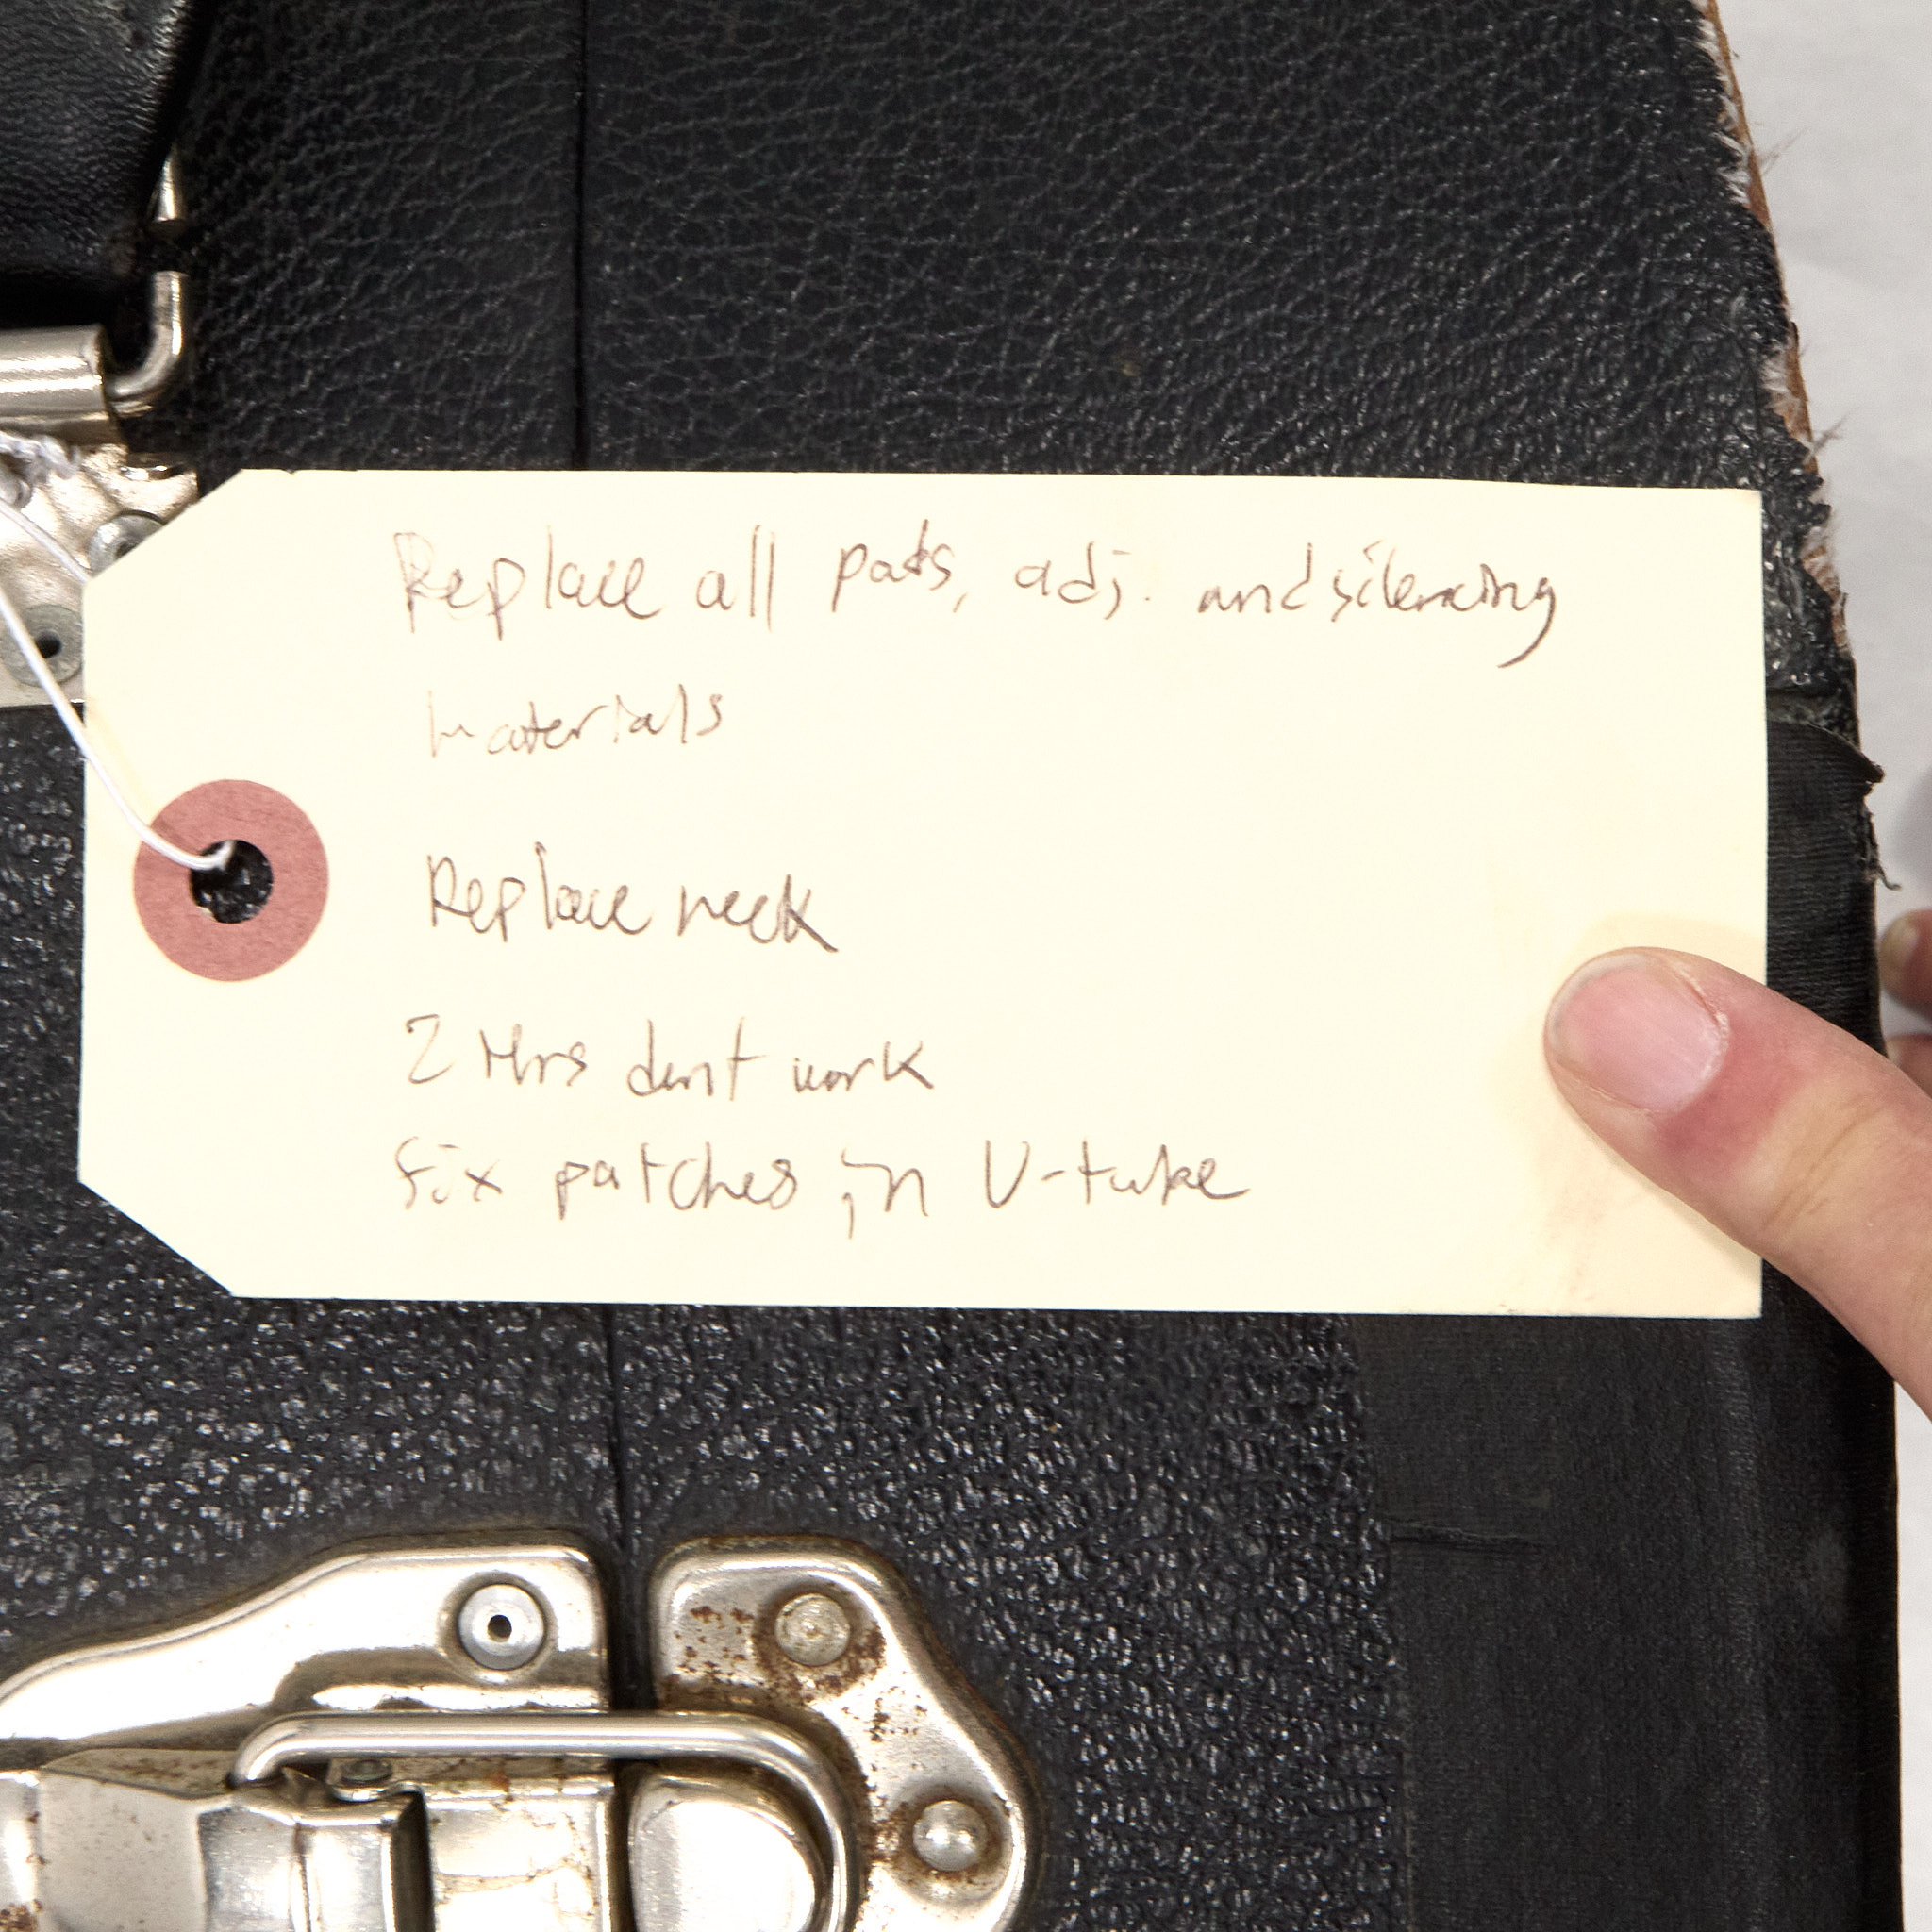 Replace all pads, adj. and silencing
materials
Replace neck
2 Hrs dent work
fix patches in U-tube